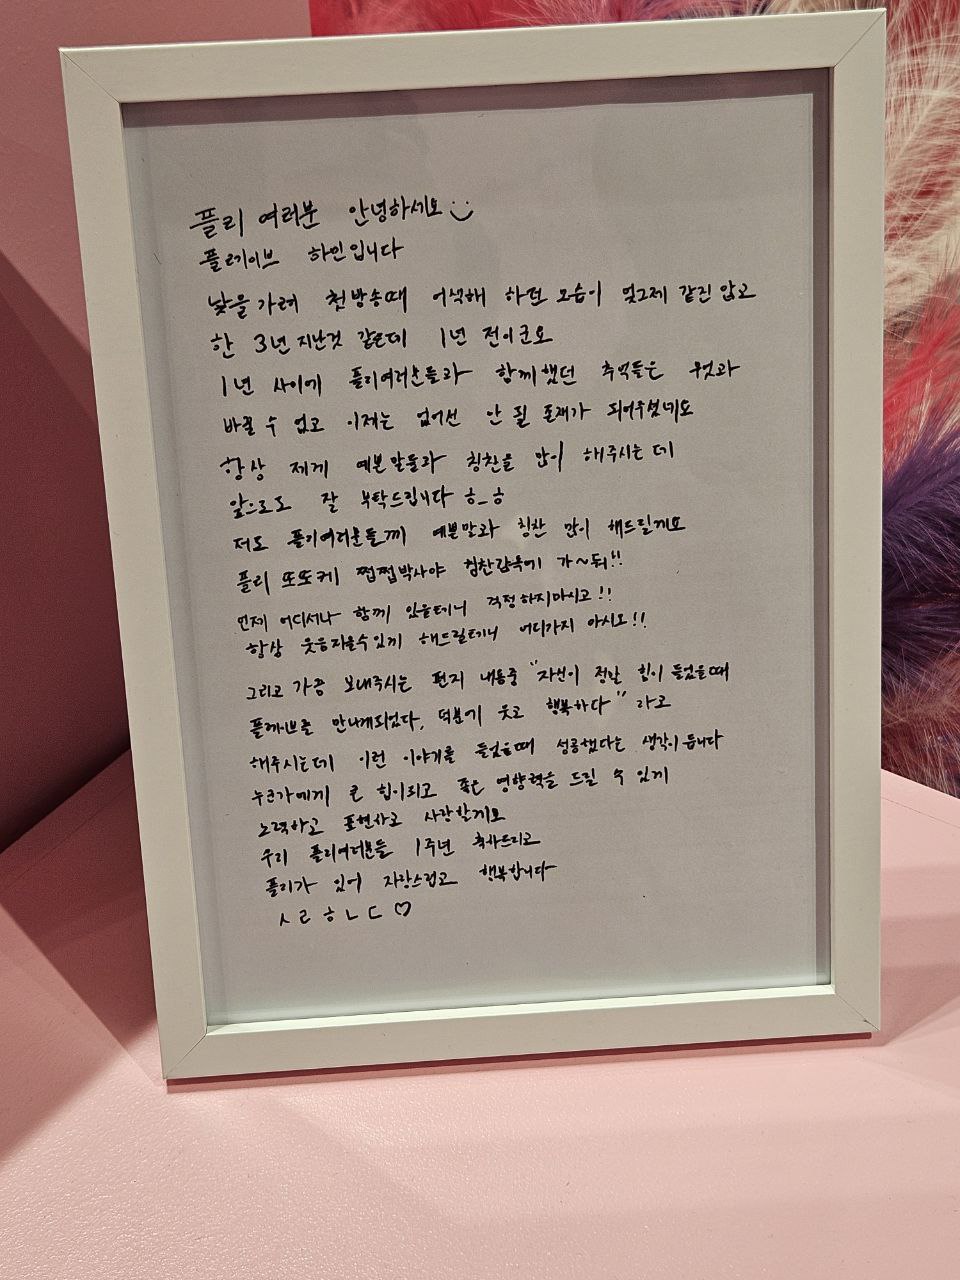 플리 여러분 안녕하세요
플레이브 하민입니다
낯을 가려 첫방송때 어색해 하던 모습이 엊그제 같진 않고
한 3년 지난것 같은데 1년 전이군요
1년 사이에 플리여러분들과 함께했던 추억들은 뭣과
바꿀 수 없고 이제는 없어선 안 될 존재가 되어주셨네요
항상 제게 예쁜말들과 칭찬을 많이 해주시는데
앞으로도 잘 부탁드립니다 ㅎ_ㅎ
저도 플리여러분들께 예쁜말과 칭찬 많이 해드릴게요
플리 또또케 쩝쩝박사야 칭찬감옥에 가~둬!!
언제 어디서나 함께 있을테니 걱정하지마시고!!
항상 웃음지을수있게 해드릴테니 어디가지 마시오!!
그리고 가끔 보내주시는 편지 내용중 "자신이 정말 힘이 들었을때
플레이브를 만나게되었다, 덕분에 웃고 행복하다" 라고
해주시는데 이런 이야기를 들었을때 성공했다는 생각이 듭니다
누군가에게 큰 힘이되고 좋은 영향력을 드릴 수 있게
노력하고 표현하고 사랑할게요
우리 플리여러분들 1주년 축하드리고
플리가 있어 자랑스럽고 행복합니다
ㅅㄹㅎㄴㄷ ♡